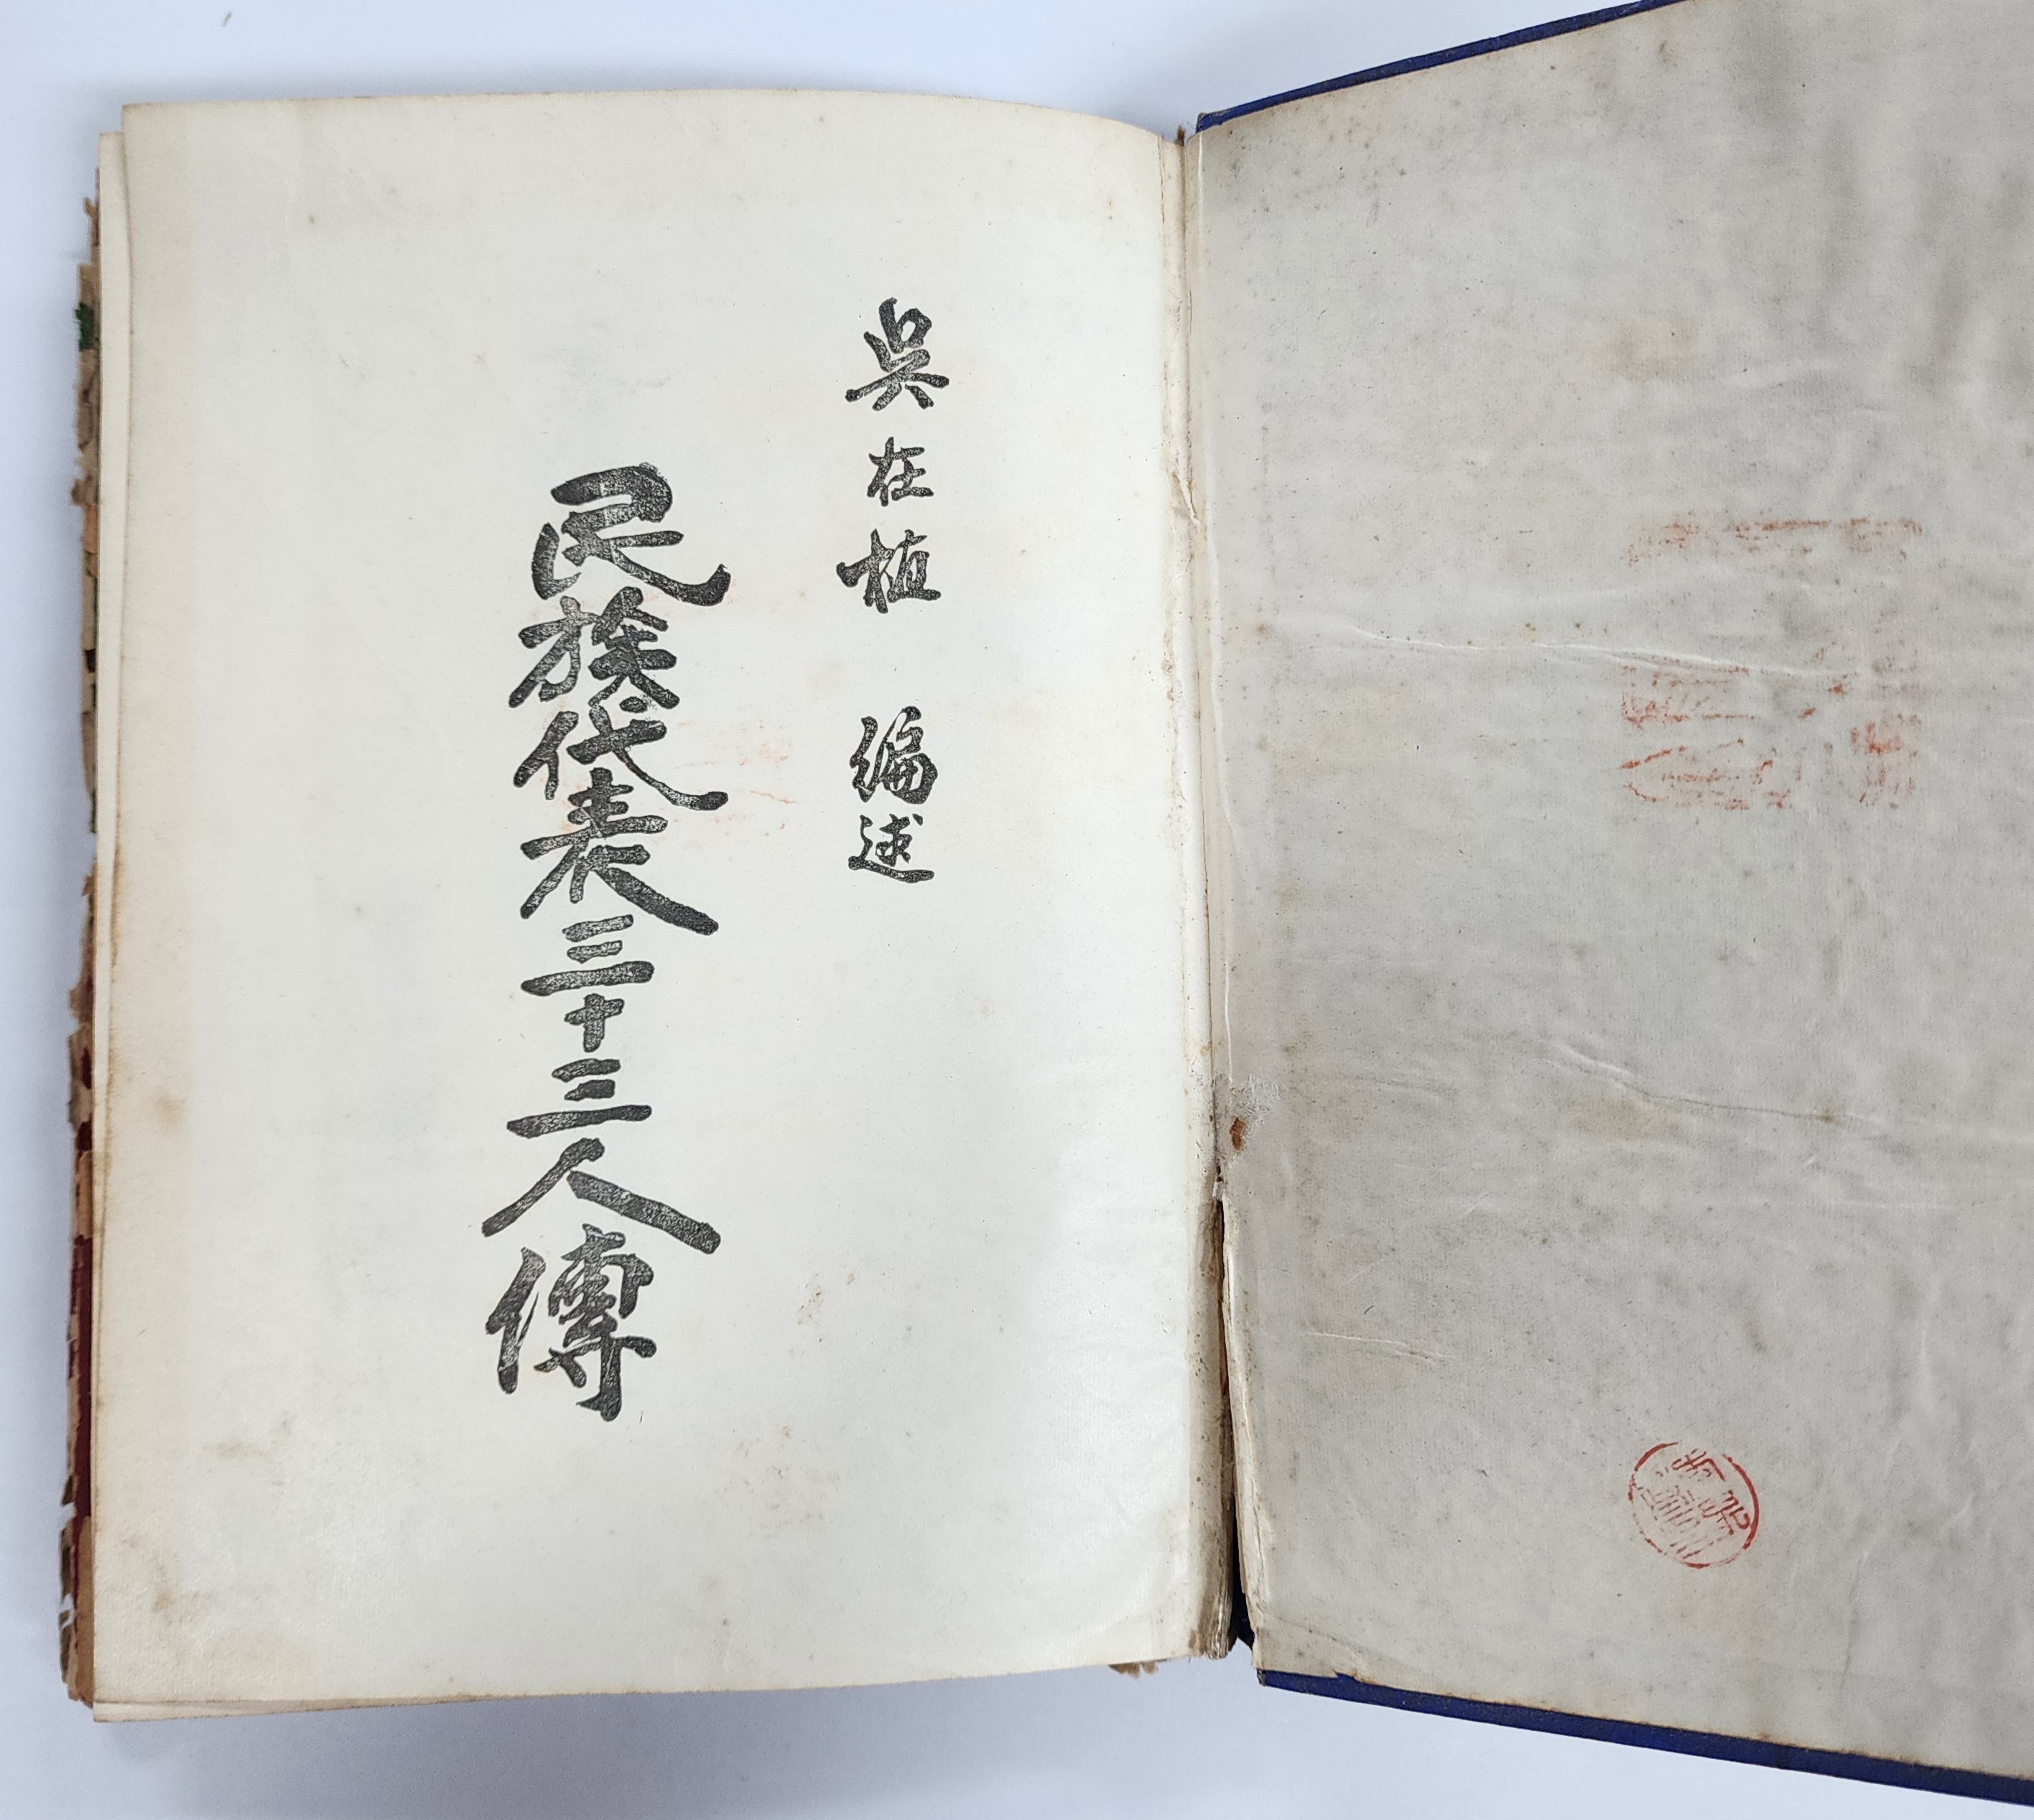 吳在植 編述
民族代表三十三人傳